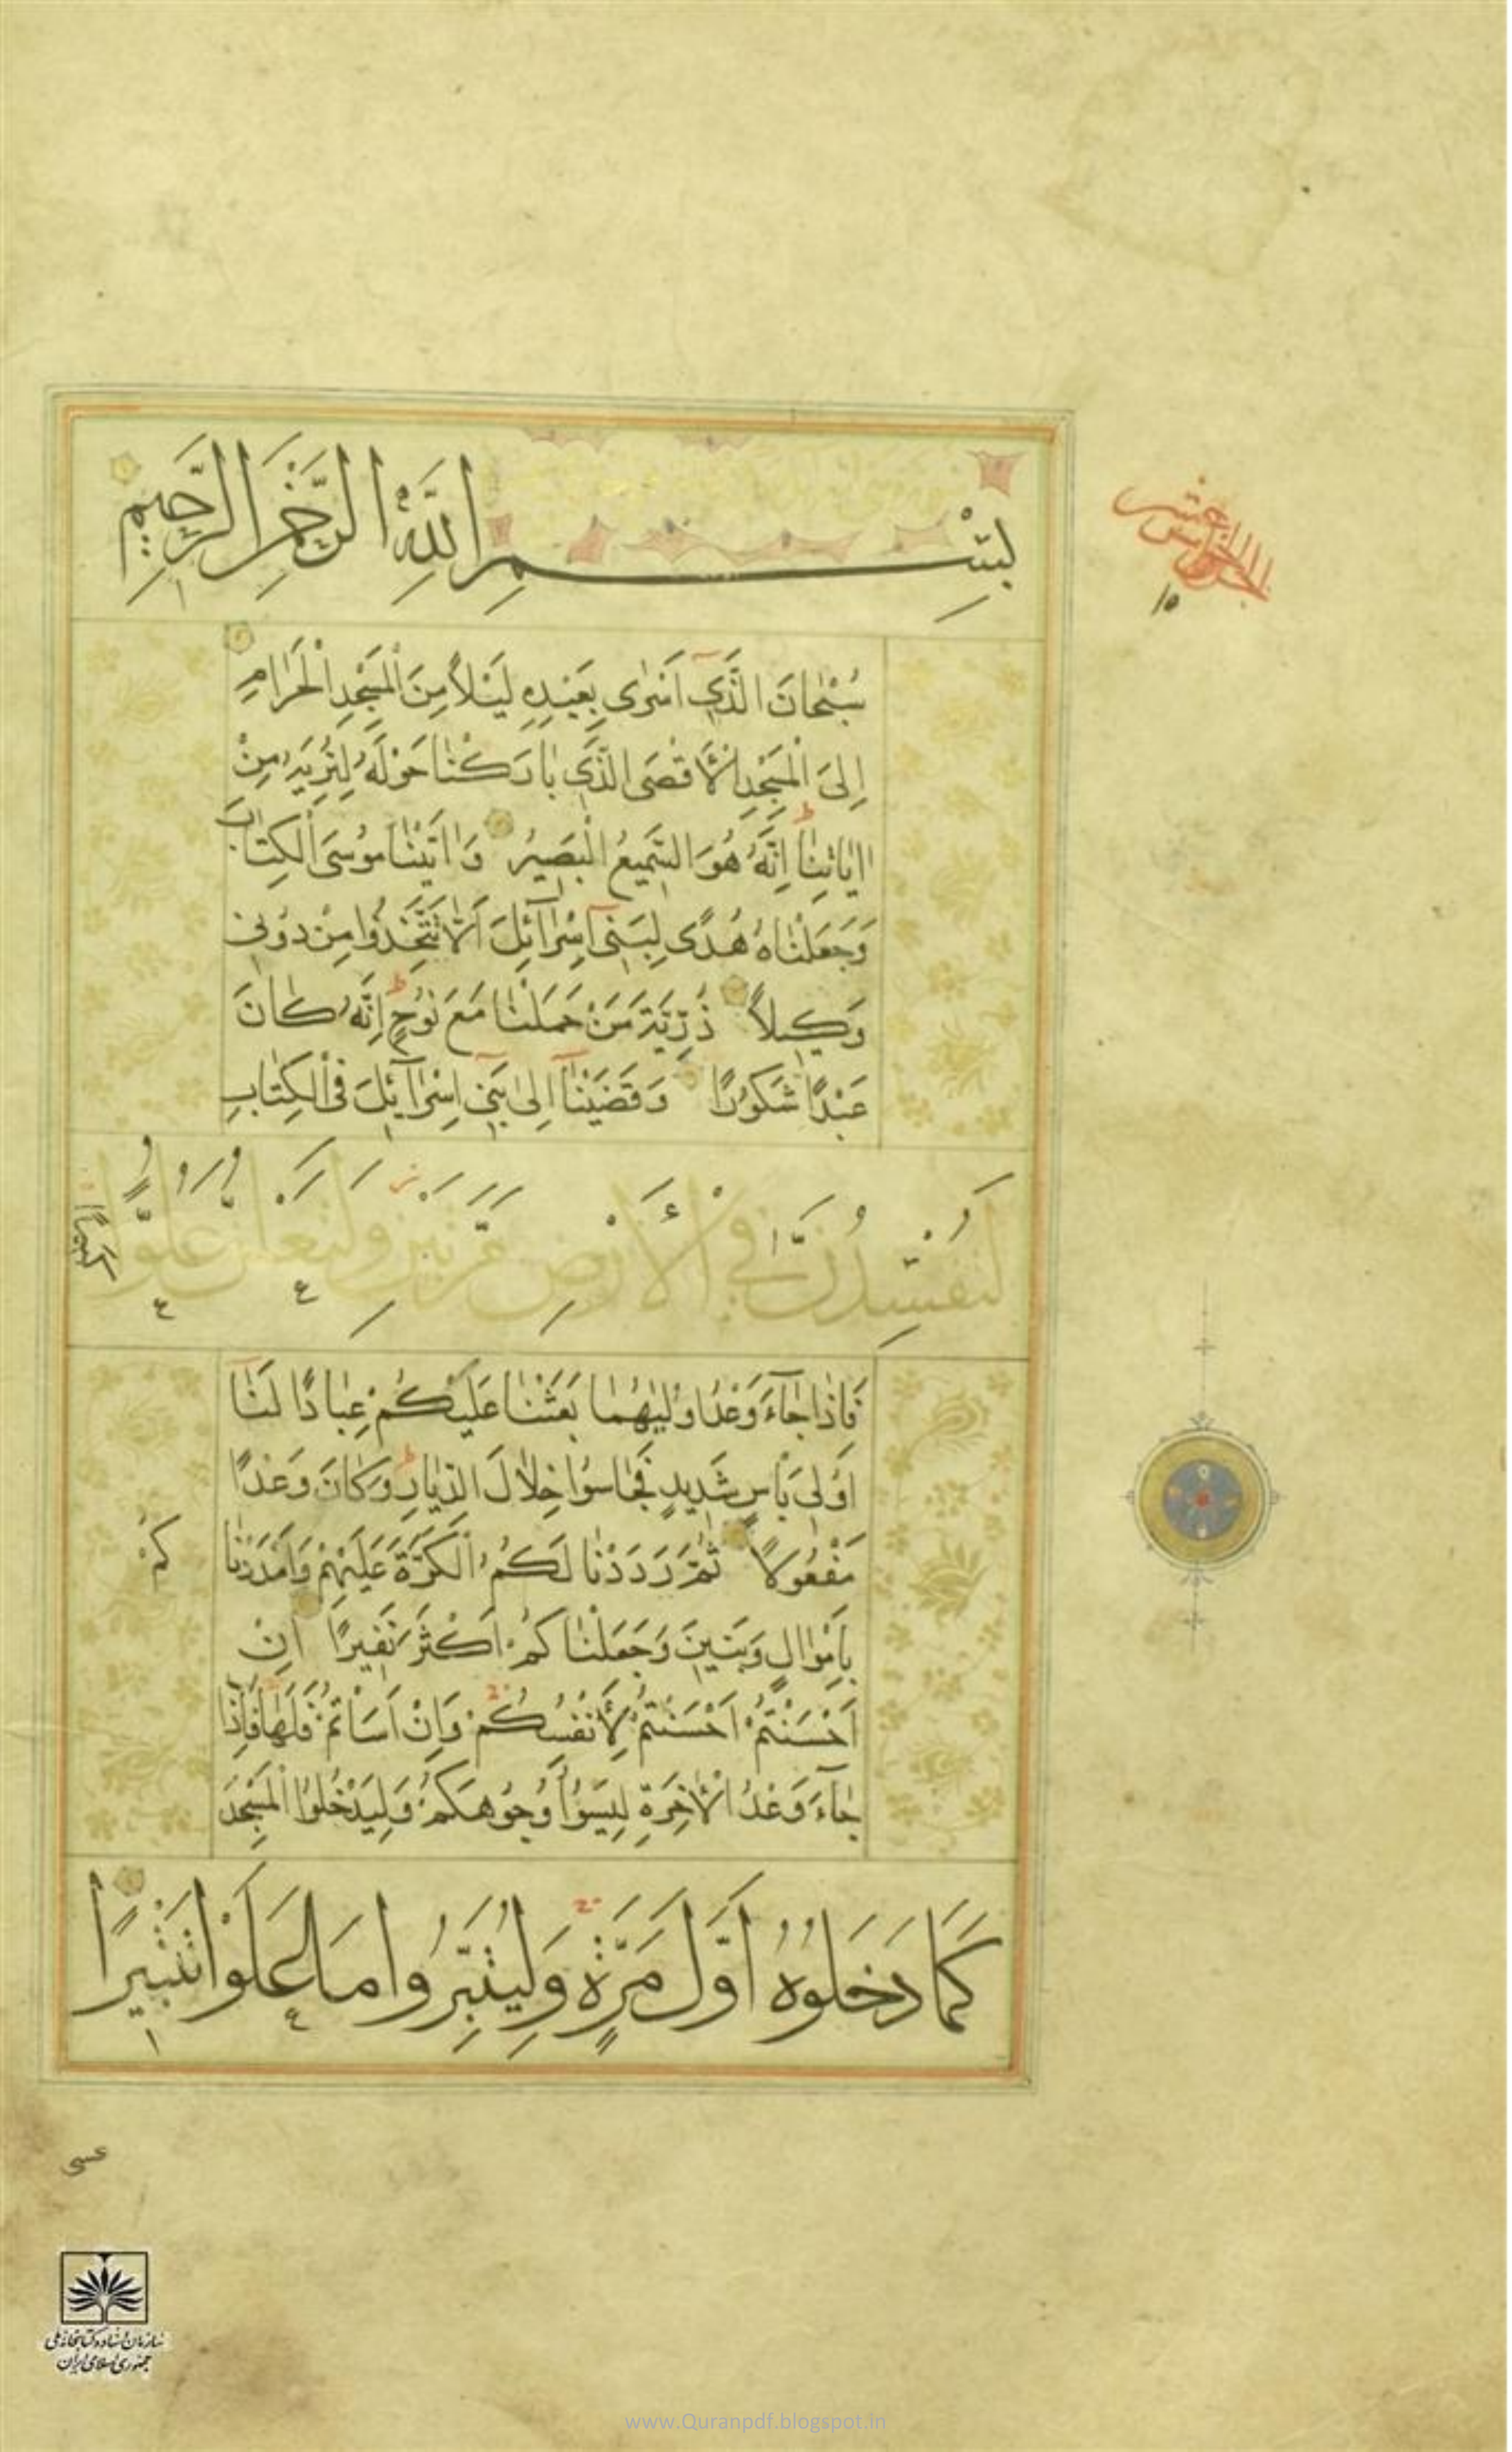 بِسْمِ اللَّهِ الرَّحْمٰنِ الرَّحِيمِ
الجزء الخامس عشر
١٥
سُبْحَانَ الَّذِي أَسْرٰى بِعَبْدِهِ لَيْلًا مِنَ الْمَسْجِدِ الْحَرَامِ
إِلَى الْمَسْجِدِ الْأَقْصَى الَّذِي بَارَكْنَا حَوْلَهُ لِنُرِيَهُ مِنْ
اٰيَاتِنَا إِنَّهُ هُوَ السَّمِيعُ الْبَصِيرُ وَاٰتَيْنَا مُوسَى الْكِتَابَ
وَجَعَلْنَاهُ هُدًى لِبَنِي إِسْرَآئِلَ أَلَّا تَتَّخِذُوا مِنْ دُونِي
وَكِيلًا ذُرِّيَّةَ مَنْ حَمَلْنَا مَعَ نُوحٍ إِنَّهُ كَانَ
عَبْدًا شَكُورًا وَقَضَيْنَآ إِلٰى بَنِي إِسْرَآئِلَ فِي الْكِتَابِ
لَتُفْسِدُنَّ فِي الْأَرْضِ مَرَّتَيْنِ وَلَتَعْلُنَّ عُلُوًّا
كبيرًا
فَإِذَا جَآءَ وَعْدُ اوْلٰيهُمَا بَعَثْنَا عَلَيْكُمْ عِبَادًا لَنَا
اُولِي بَأْسٍ شَدِيدٍ فَجَاسُوا خِلَالَ الدِّيَارِ وَكَانَ وَعْدًا
مَفْعُولًا ثُمَّ رَدَدْنَا لَكُمُ الْكَرَّةَ عَلَيْهِمْ وَأَمْدَدْنَا
كُمْ
بِأَمْوَالٍ وَبَنِينَ وَجَعَلْنَاكُمْ أَكْثَرَ نَفِيرًا إِنْ
أَحْسَنْتُمْ أَحْسَنْتُمْ لِأَنْفُسِكُمْ وَإِنْ أَسَأْتُمْ فَلَهَا فَإِذَا
جَآءَ وَعْدُ الْاٰخِرَةِ لِيَسُوؤُا وُجُوهَكُمْ وَلِيَدْخُلُوا الْمَسْجِدَ
كَمَا دَخَلُوهُ أَوَّلَ مَرَّةٍ وَلِيُتَبِّرُوا مَا عَلَوْا تَتْبِيرًا
عسى
سازمان اسناد و کتابخانه ملی
جمهوری اسلامی ایران
www.Quranpdf.blogspot.in